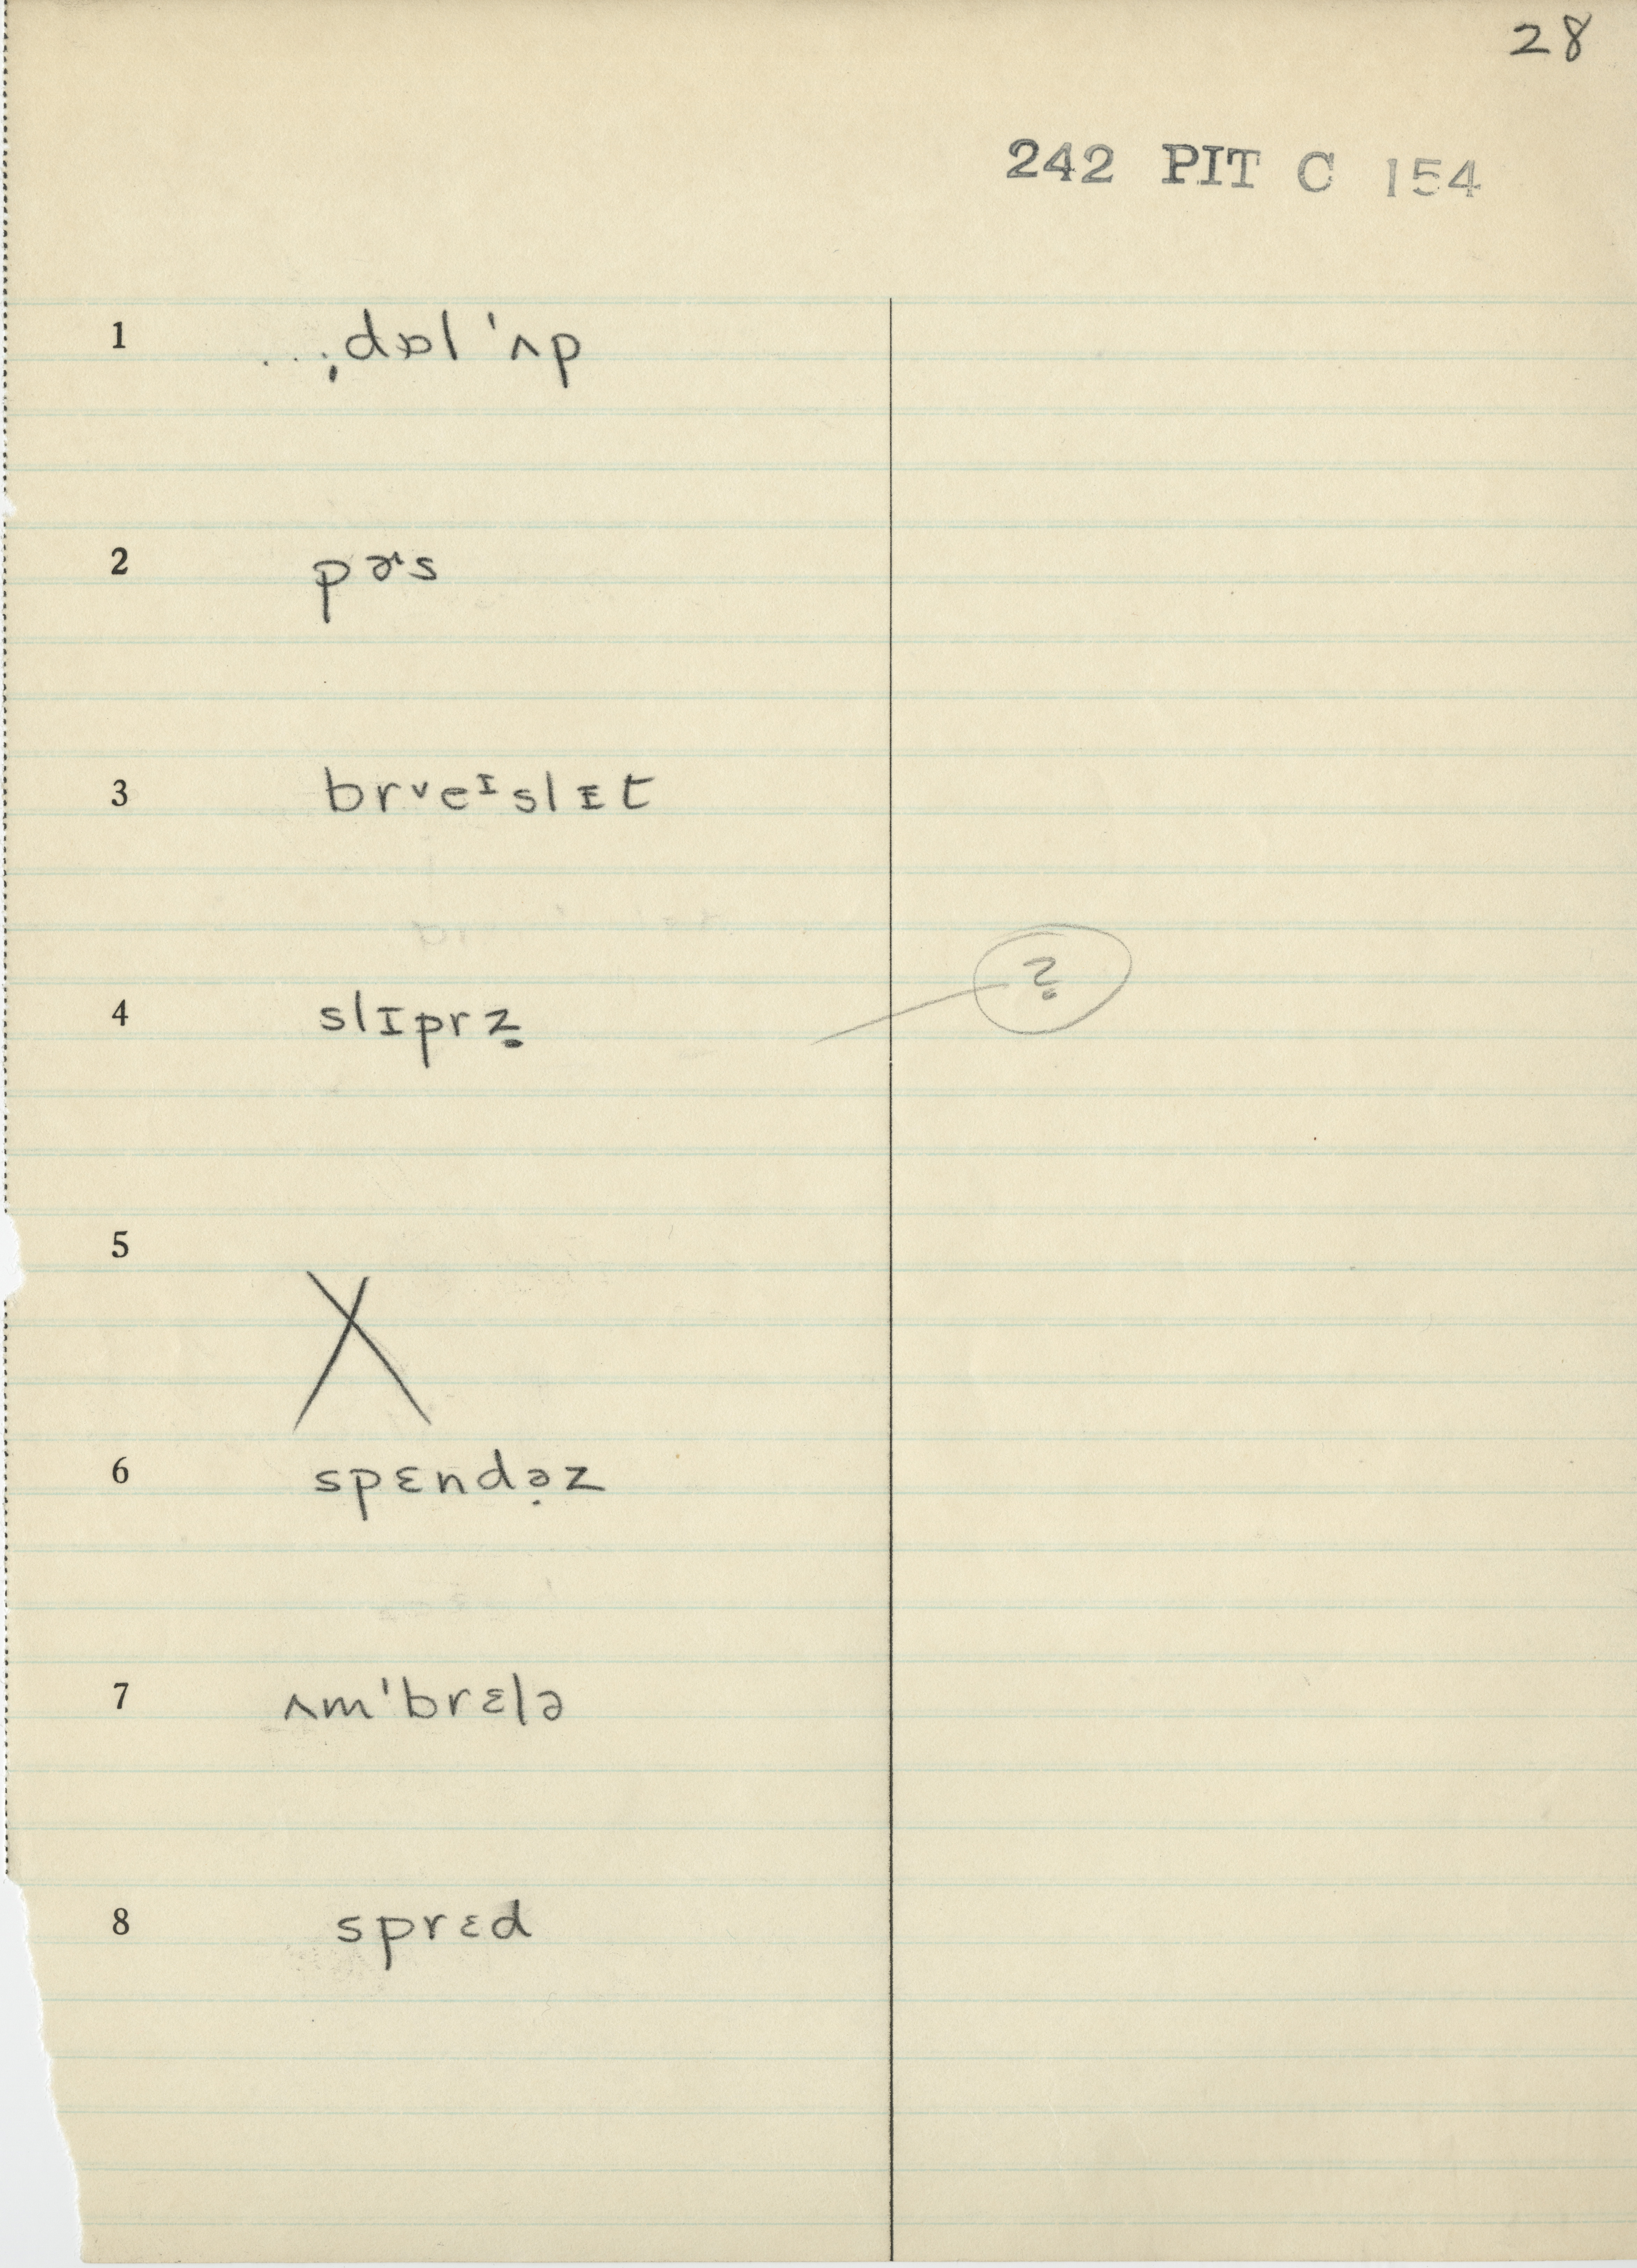 28
242 PIT C 154
1 . . ; dɒl 'ʌp
2 pɚs
3 brᵛeᶦslɪt
?
4 slɪprẓ
5 X
6 spɛndə̣z
7 ʌm'brɛlə
8 sprɛd